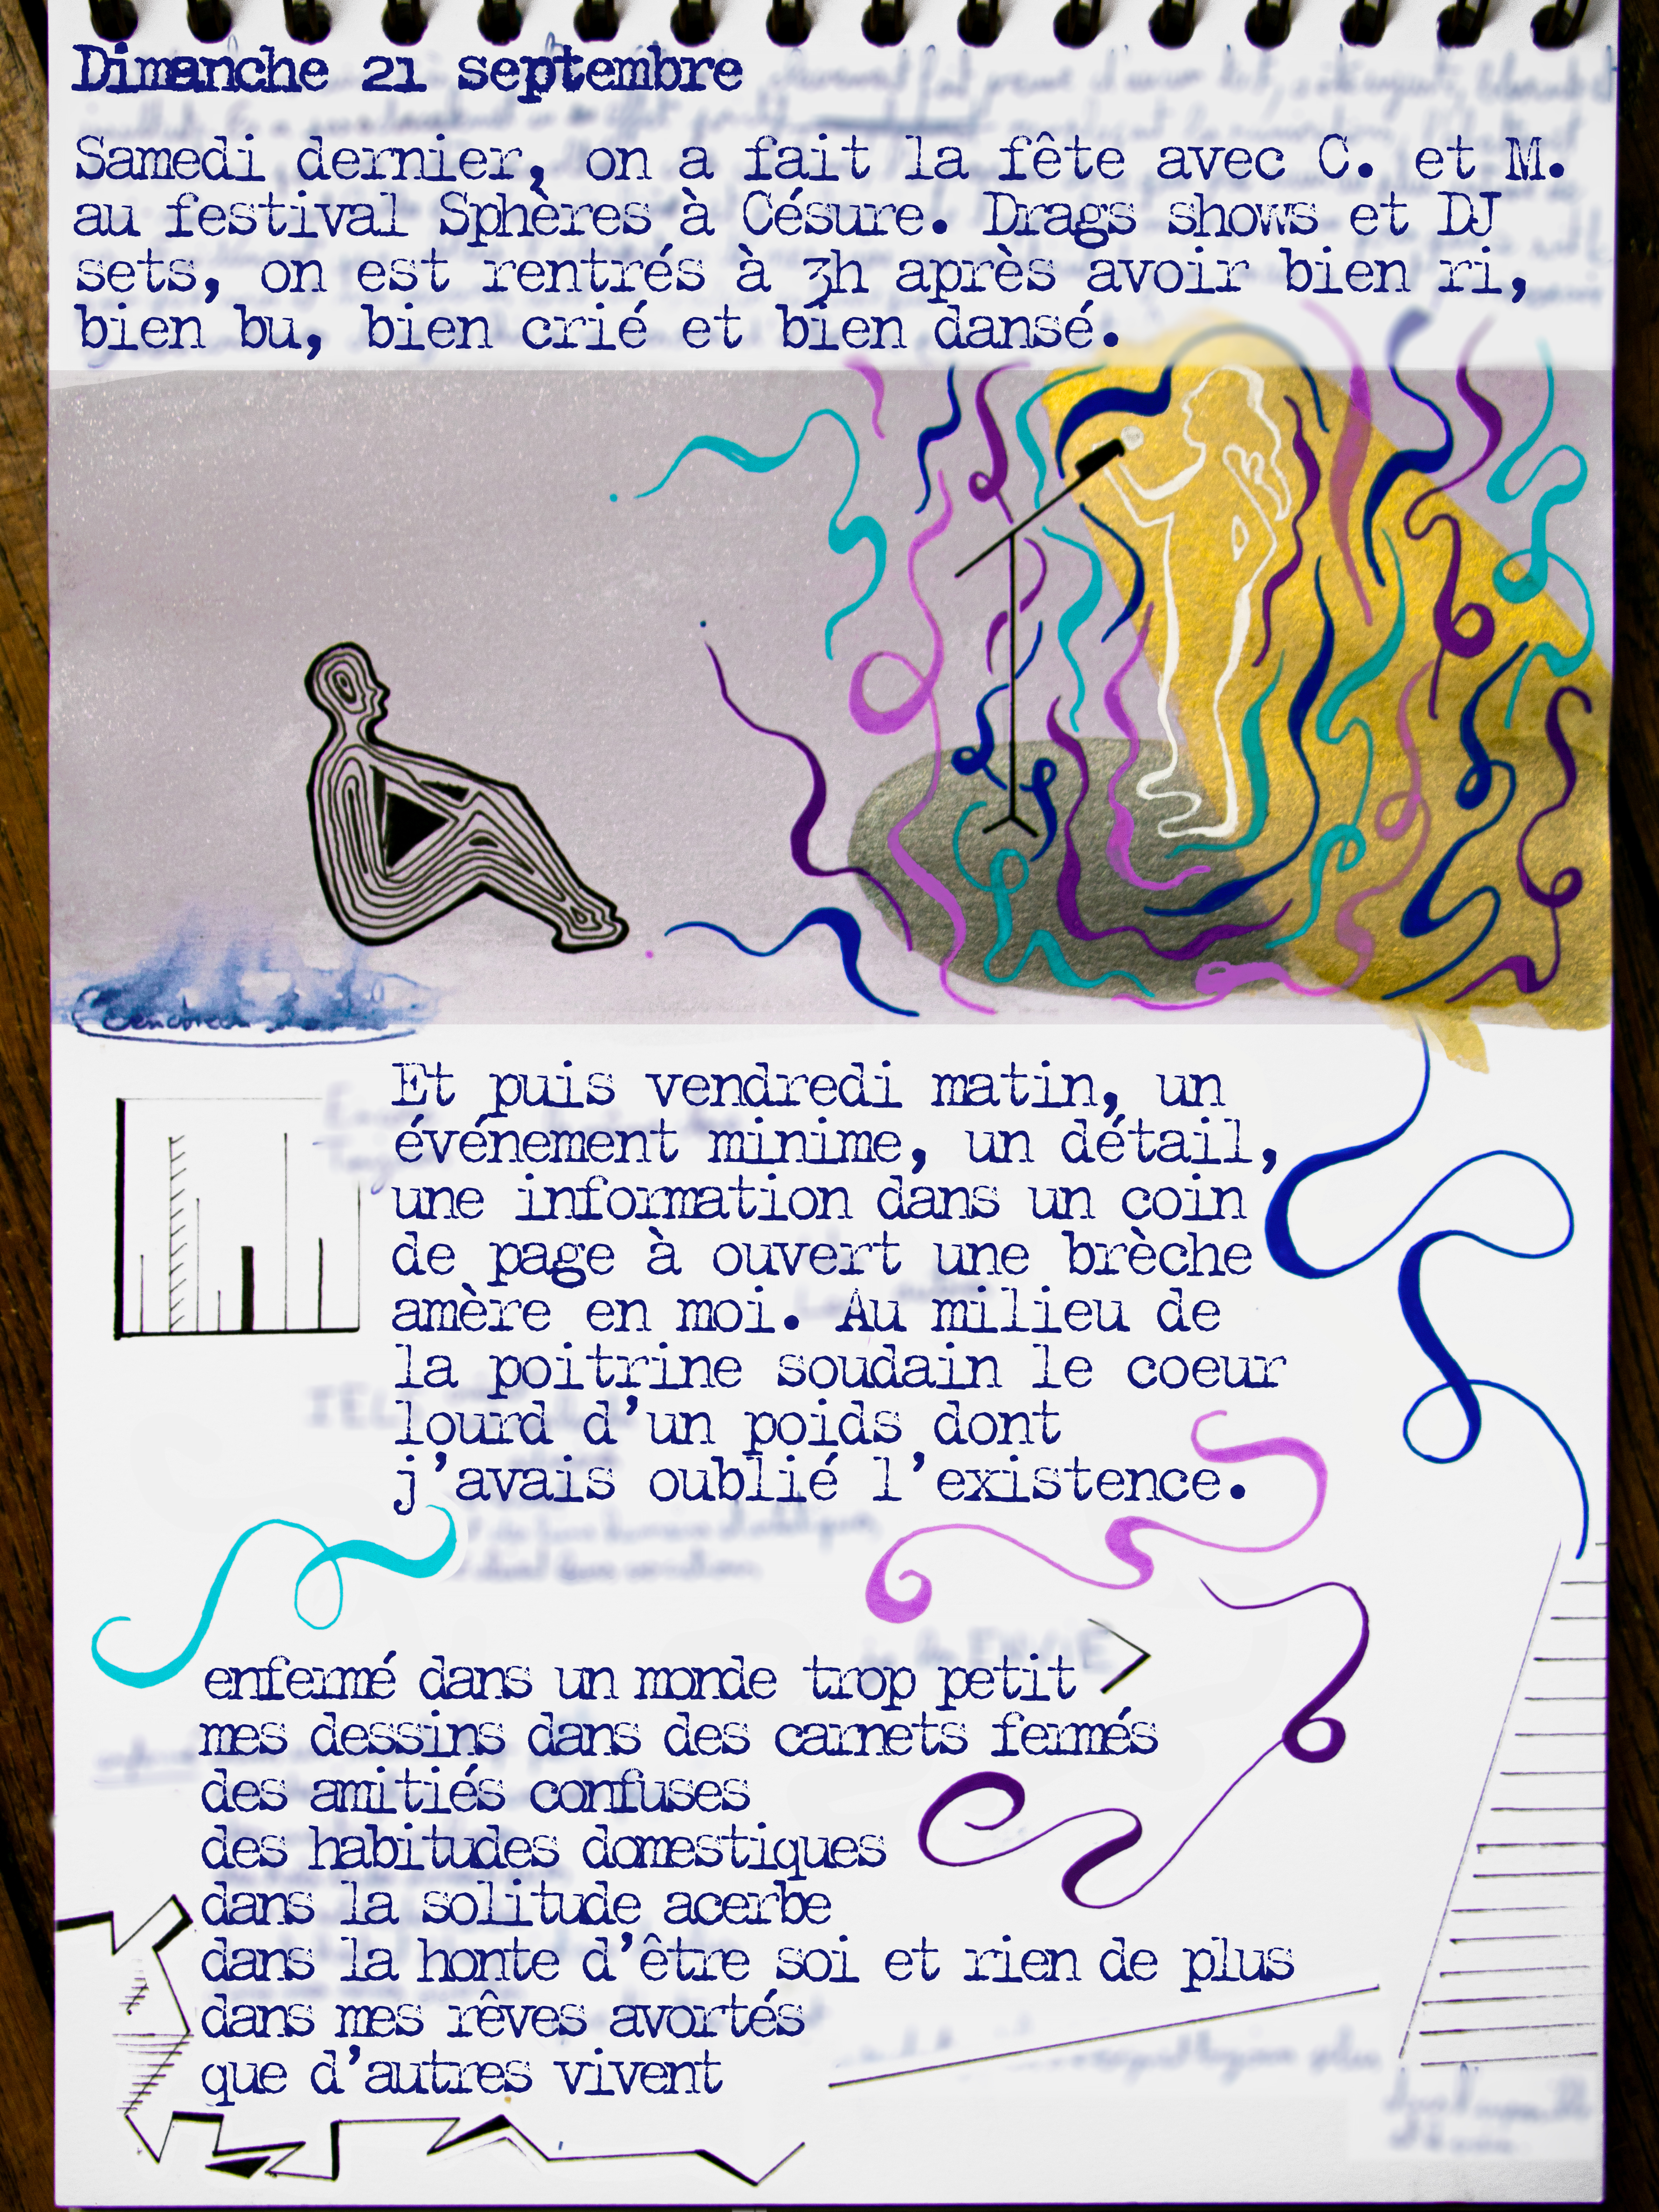 Dimanche 21 septembre
Samedi dernier, on a fait la fête avec C. et M.
au festival Sphères à Césure. Drags shows et DJ
sets, on est rentrés à 3h après avoir bien ri,
bien bu, bien crié et bien dansé.
Et puis vendredi matin, un
événement minime, un détail,
une information dans un coin
de page à ouvert une brèche
amère en moi. Au milieu de
la poitrine soudain le coeur
lourd d'un poids dont
j'avais oublié l'existence.
enfermé dans un monde trop petit
mes dessins dans des carnets fermés
des amitiés confuses
des habitudes domestiques
dans la solitude acerbe
dans la honte d'être soi et rien de plus
dans mes rêves avortés
que d'autres vivent